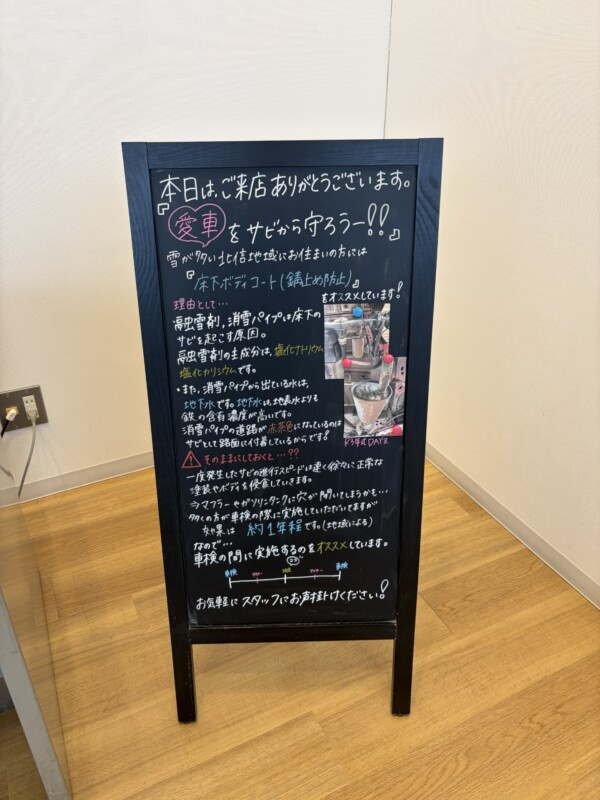 本日は、ご来店ありがとうございます。
『愛車をサビから守ろうー!!』
雪が多い北信地域にお住まいの方には
『床下ボディコート(錆止め防止)』
をオススメしています!
理由として…
融雪剤,消雪パイプは床下の
サビを起こす原因。
融雪剤の主成分は、塩化ナトリウム
塩化カリシウムです。
・また,消雪パイプから出ている水は、
地下水です。地下水は地表水よりも
鉄の含有濃度が高いです。
消雪パイプの道路が赤茶色になっているのは
サビとして路面に付着しているからです!
K3年式DAYZ
そのままにしておくと…??
一度発生したサビの進行スピードは速く徐々に正常な
塗装やボディを侵食していきます。
⇒マフラーやガソリンタンクに穴が開いてしまうかも…
多くの方が車検の際に実施していただいてますが
効果は 約1年程です。(地域による)
なので…
車検の間に実施するのをオススメしています。
ココ
車検 車検
お気軽にスタッフにお声掛けください!